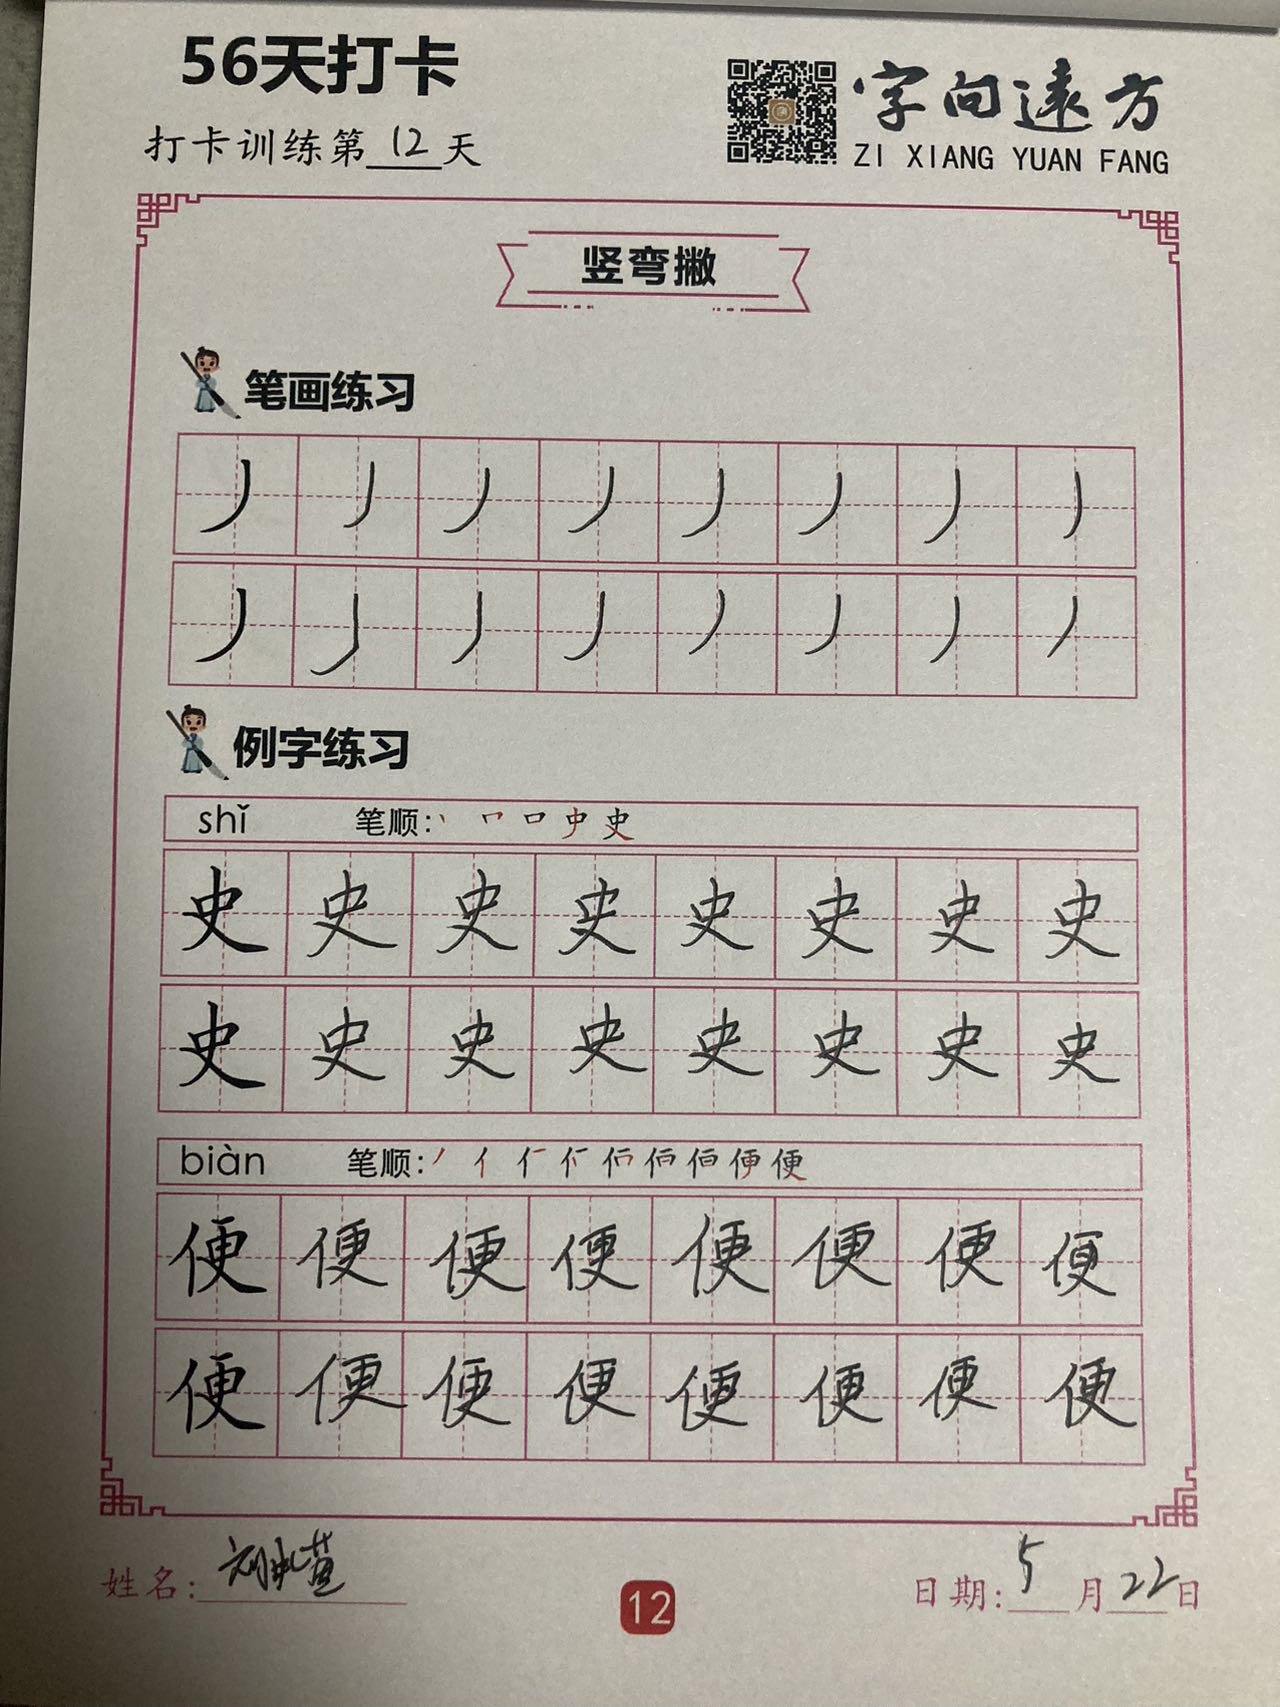 56天打卡
打卡训练第12天
字向遠方
ZI XIANG YUAN FANG
竖弯撇
笔画练习
丿 丿 丿 丿 丿 丿 丿 丿
丿 丿 丿 丿 丿 丿 丿 丿
例字练习
shǐ 笔顺:丶 𠃍 口 史 史
史 史 史 史 史 史 史 史
史 史 史 史 史 史 史 史
biàn 笔顺:丿 亻 便
便 便 便 便 便 便 便 便
便 便 便 便 便 便 便 便
姓名:刘
12
日期:5月22日